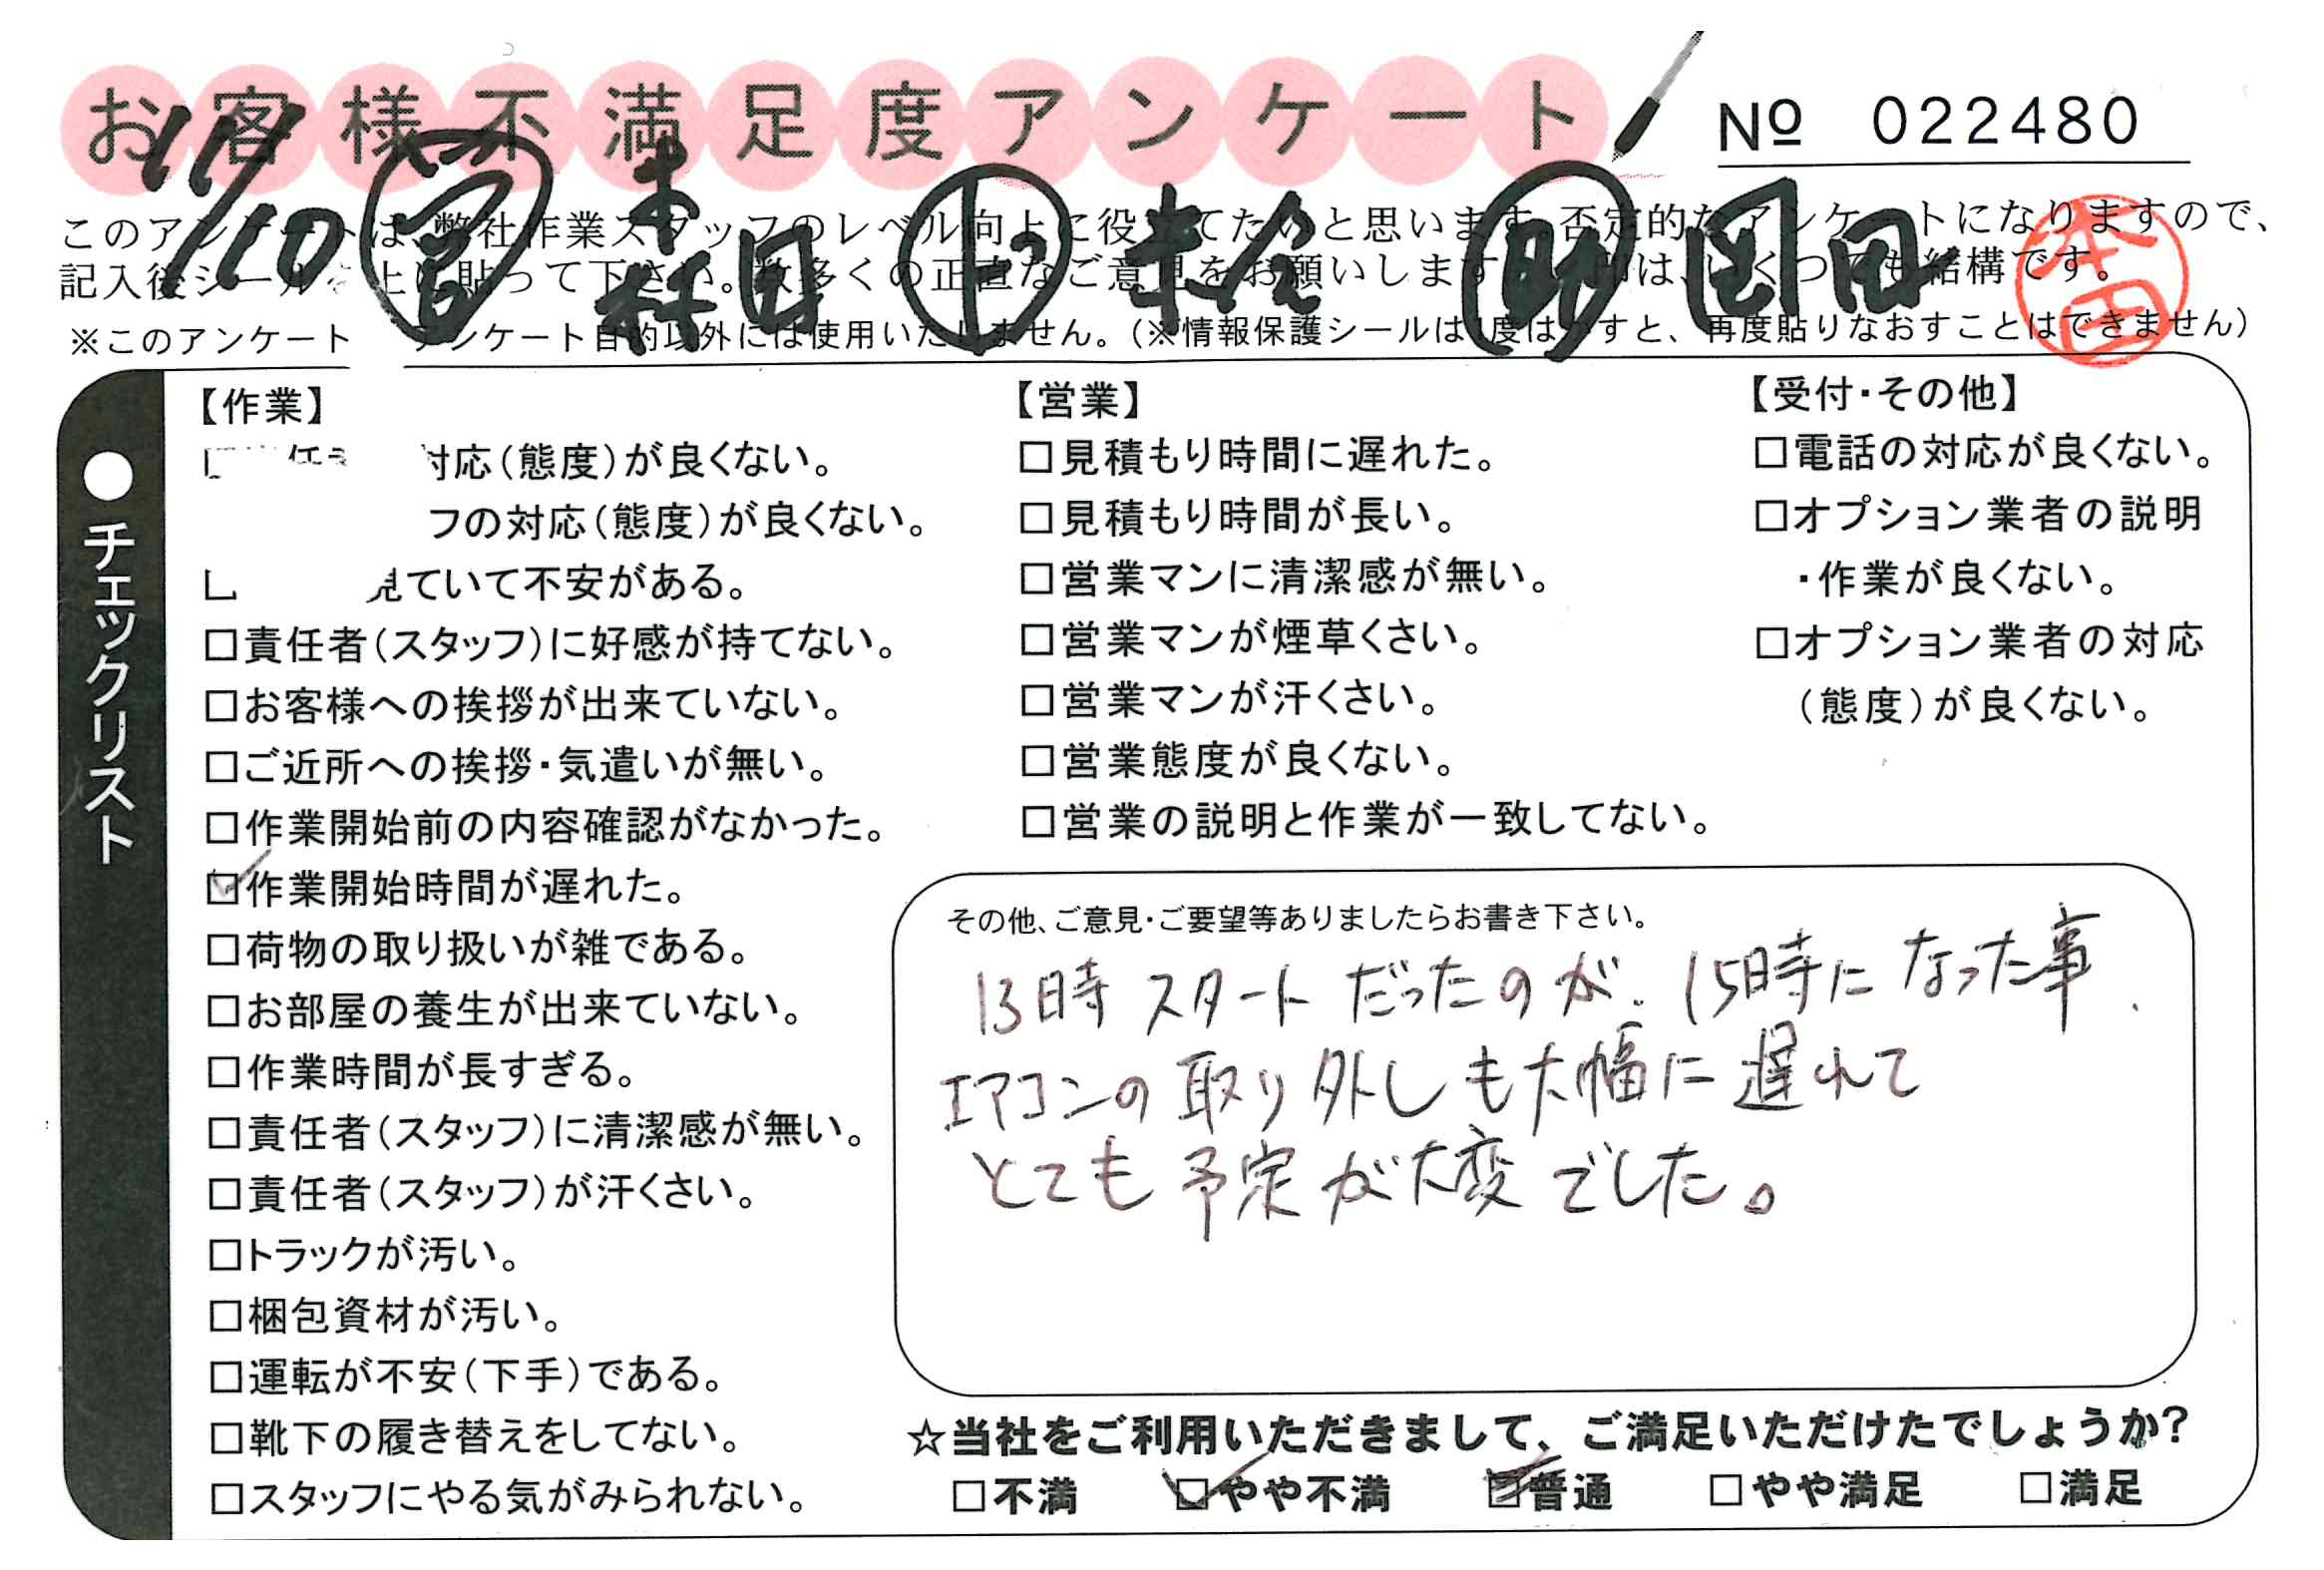 お客様不満足度アンケート
№ 022480
11/10 営 本村田 ト 米倉 助 岡田
本田
このアンケートは、弊社作業スタッフのレベル向上に役立てたいと思います。否定的なアンケートになりますので、
記入後シールを上に貼って下さい。数多くの正直なご意見をお願いします。 印は、いくつでも結構です。
※このアンケート アンケート目的以外には使用いたしません。(※情報保護シールは1度はがすと、再度貼りなおすことはできません)
●チェックリスト
【作業】
任 対応(態度)が良くない。
フの対応(態度)が良くない。
見ていて不安がある。
□責任者(スタッフ)に好感が持てない。
□お客様への挨拶が出来ていない。
□ご近所への挨拶・気遣いが無い。
□作業開始前の内容確認がなかった。
☑作業開始時間が遅れた。
□荷物の取り扱いが雑である。
□お部屋の養生が出来ていない。
□作業時間が長すぎる。
□責任者(スタッフ)に清潔感が無い。
□責任者(スタッフ)が汗くさい。
□トラックが汚い。
□梱包資材が汚い。
□運転が不安(下手)である。
□靴下の履き替えをしてない。
□スタッフにやる気がみられない。
【営業】
□見積もり時間に遅れた。
□見積もり時間が長い。
□営業マンに清潔感が無い。
□営業マンが煙草くさい。
□営業マンが汗くさい。
□営業態度が良くない。
□営業の説明と作業が一致してない。
【受付・その他】
□電話の対応が良くない。
□オプション業者の説明
・作業が良くない。
□オプション業者の対応
(態度)が良くない。
その他、ご意見・ご要望等ありましたらお書き下さい。
13時スタートだったのが、15時になった事、
エアコンの取り外しも大幅に遅れて
とても予定が大変でした。
☆当社をご利用いただきまして、ご満足いただけたでしょうか?
□不満 ☑やや不満 □普通 □やや満足 □満足